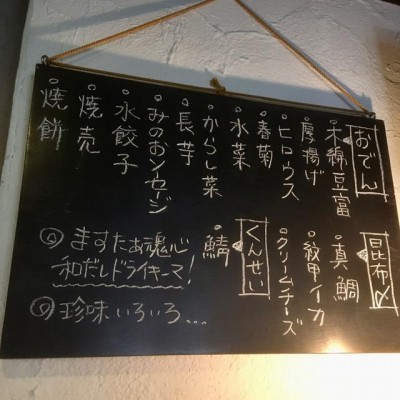 おでん
木綿豆富
厚揚げ
ヒロウス
春菊
水菜
からし菜
長芋
みのおソーセージ
水餃子
焼売
焼餅
昆布〆
真鯛
紋甲イカ
クリームチーズ
くんせい
鯖
ますたぁ魂心
和だしドライキーマ!
珍味いろいろ...